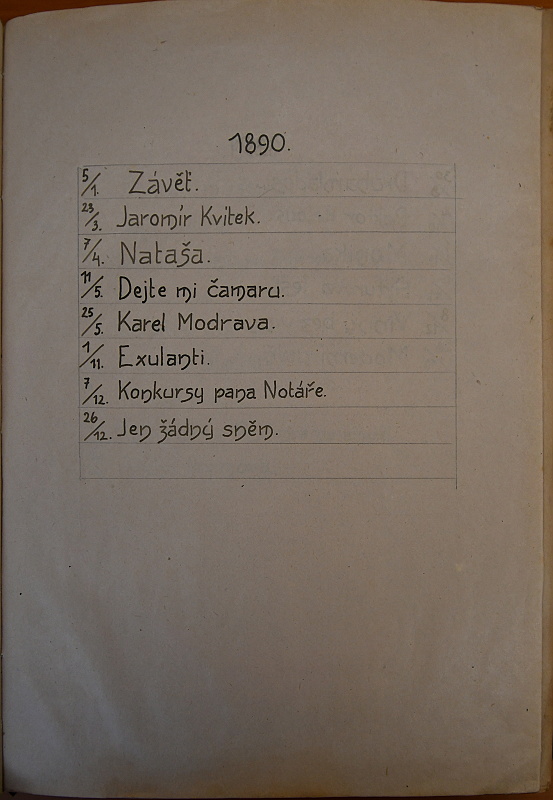 1890.
5/1. Závěť.
23/3. Jaromír Kvítek.
7/4. Nataša.
11/5. Dejte mi čamaru.
25/5. Karel Modrava.
1/11. Exulanti.
7/12. Konkursy pana Notáře.
26/12. Jen žádný sněm.